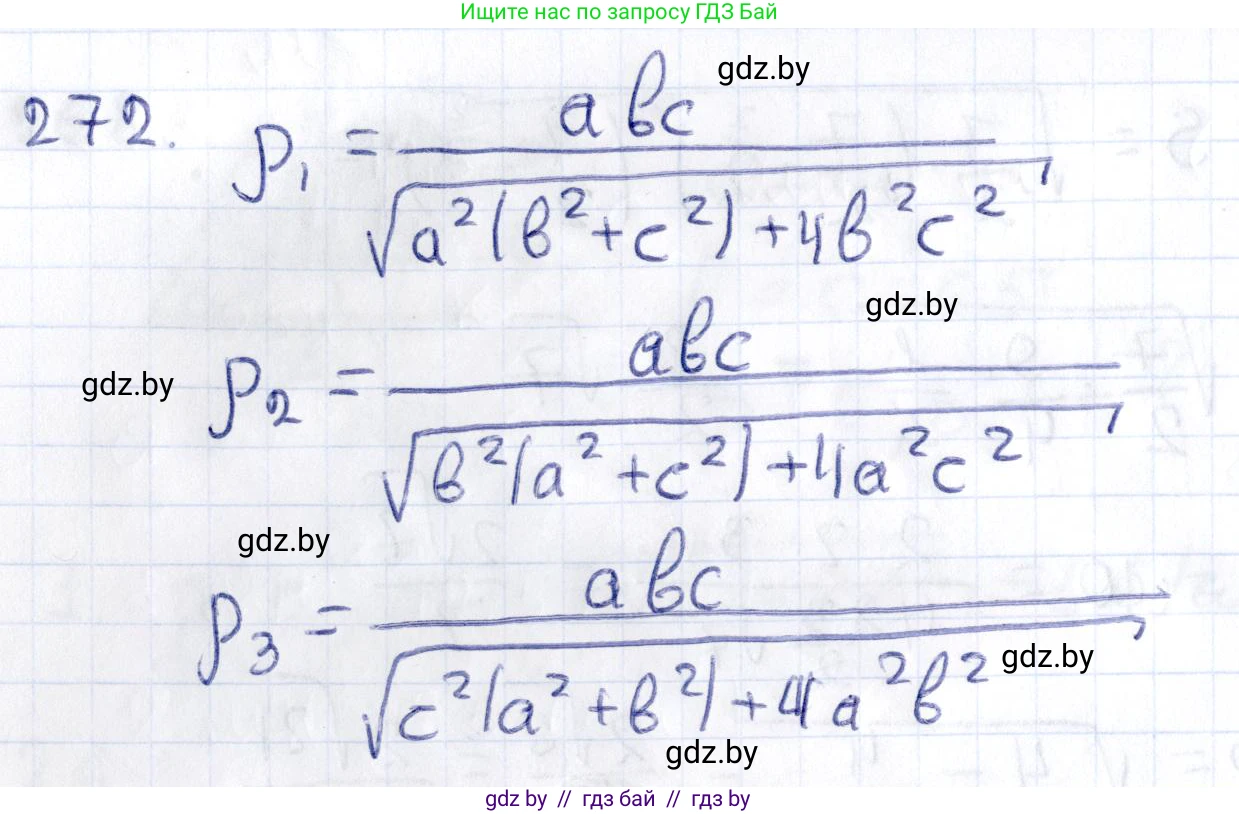 Ищите нас по запросу ГДЗ Бай
gdz.by
272. ρ₁ = aвc / √(a²(в²+c²)+4в²c²),
gdz.by
gdz.by
ρ₂ = aвc / √(в²(a²+c²)+4a²c²),
gdz.by
ρ₃ = aвc / √(c²(a²+в²)+4a²в²),
gdz.by
gdz.by
gdz by // гдз бай // гдз by